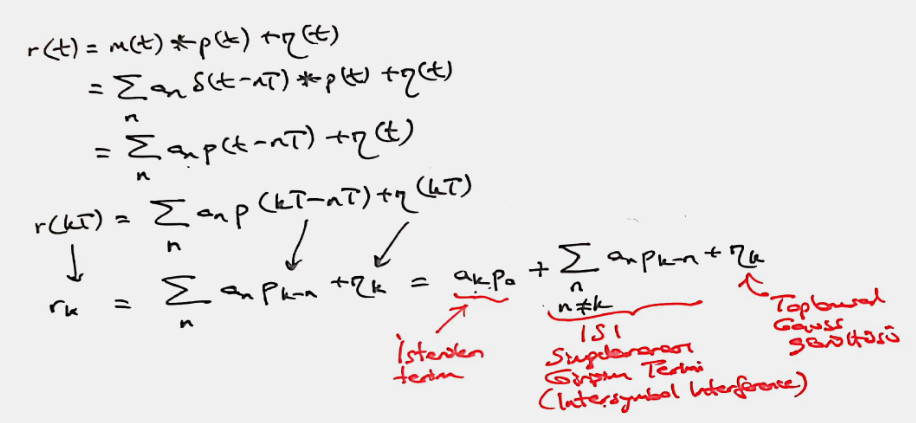 r(t) = m(t) * p(t) + η(t)
= Σ_n a_n δ(t-nT) * p(t) + η(t)
= Σ_n a_n p(t-nT) + η(t)
r(kT) = Σ_n a_n p(kT-nT) + η(kT)
r_k = Σ_n a_n p_{k-n} + η_k = a_k p_0 + Σ_{n, n≠k} a_n p_{k-n} + η_k
İstenilen
terim
ISI
Simgelerarası
Girişim Terimi
(Intersymbol Interference)
Toplamsal
Gauss
gürültüsü